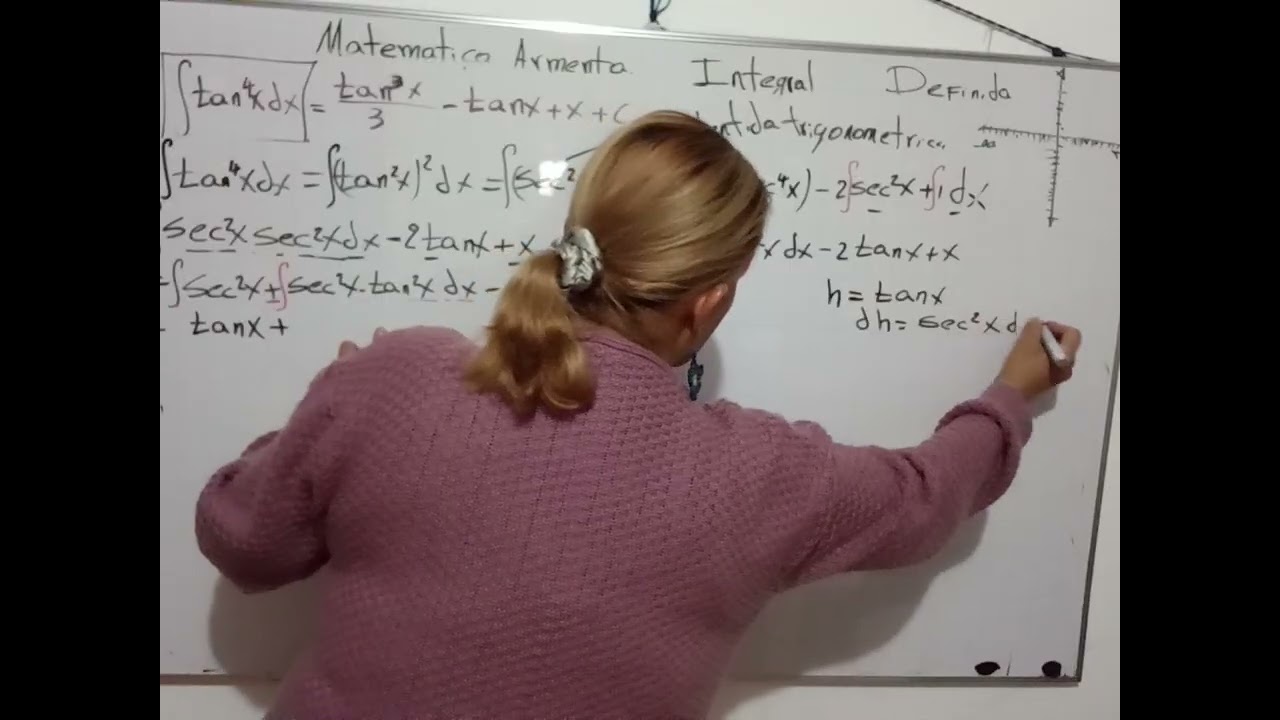 Matematica Armenta. Integral Definida
∫tan⁴xdx = tan³x/3 - tanx + x + C
trigonometrica
∫tan⁴xdx = ∫(tan²x)²dx = ∫(sec² ⁴x) - 2∫sec²x + ∫1dx
sec²x sec²xdx - 2tanx + x x dx - 2tanx + x
=∫sec²x + ∫sec²x·tan²x dx - h = tanx
tanx + dh = sec²x d